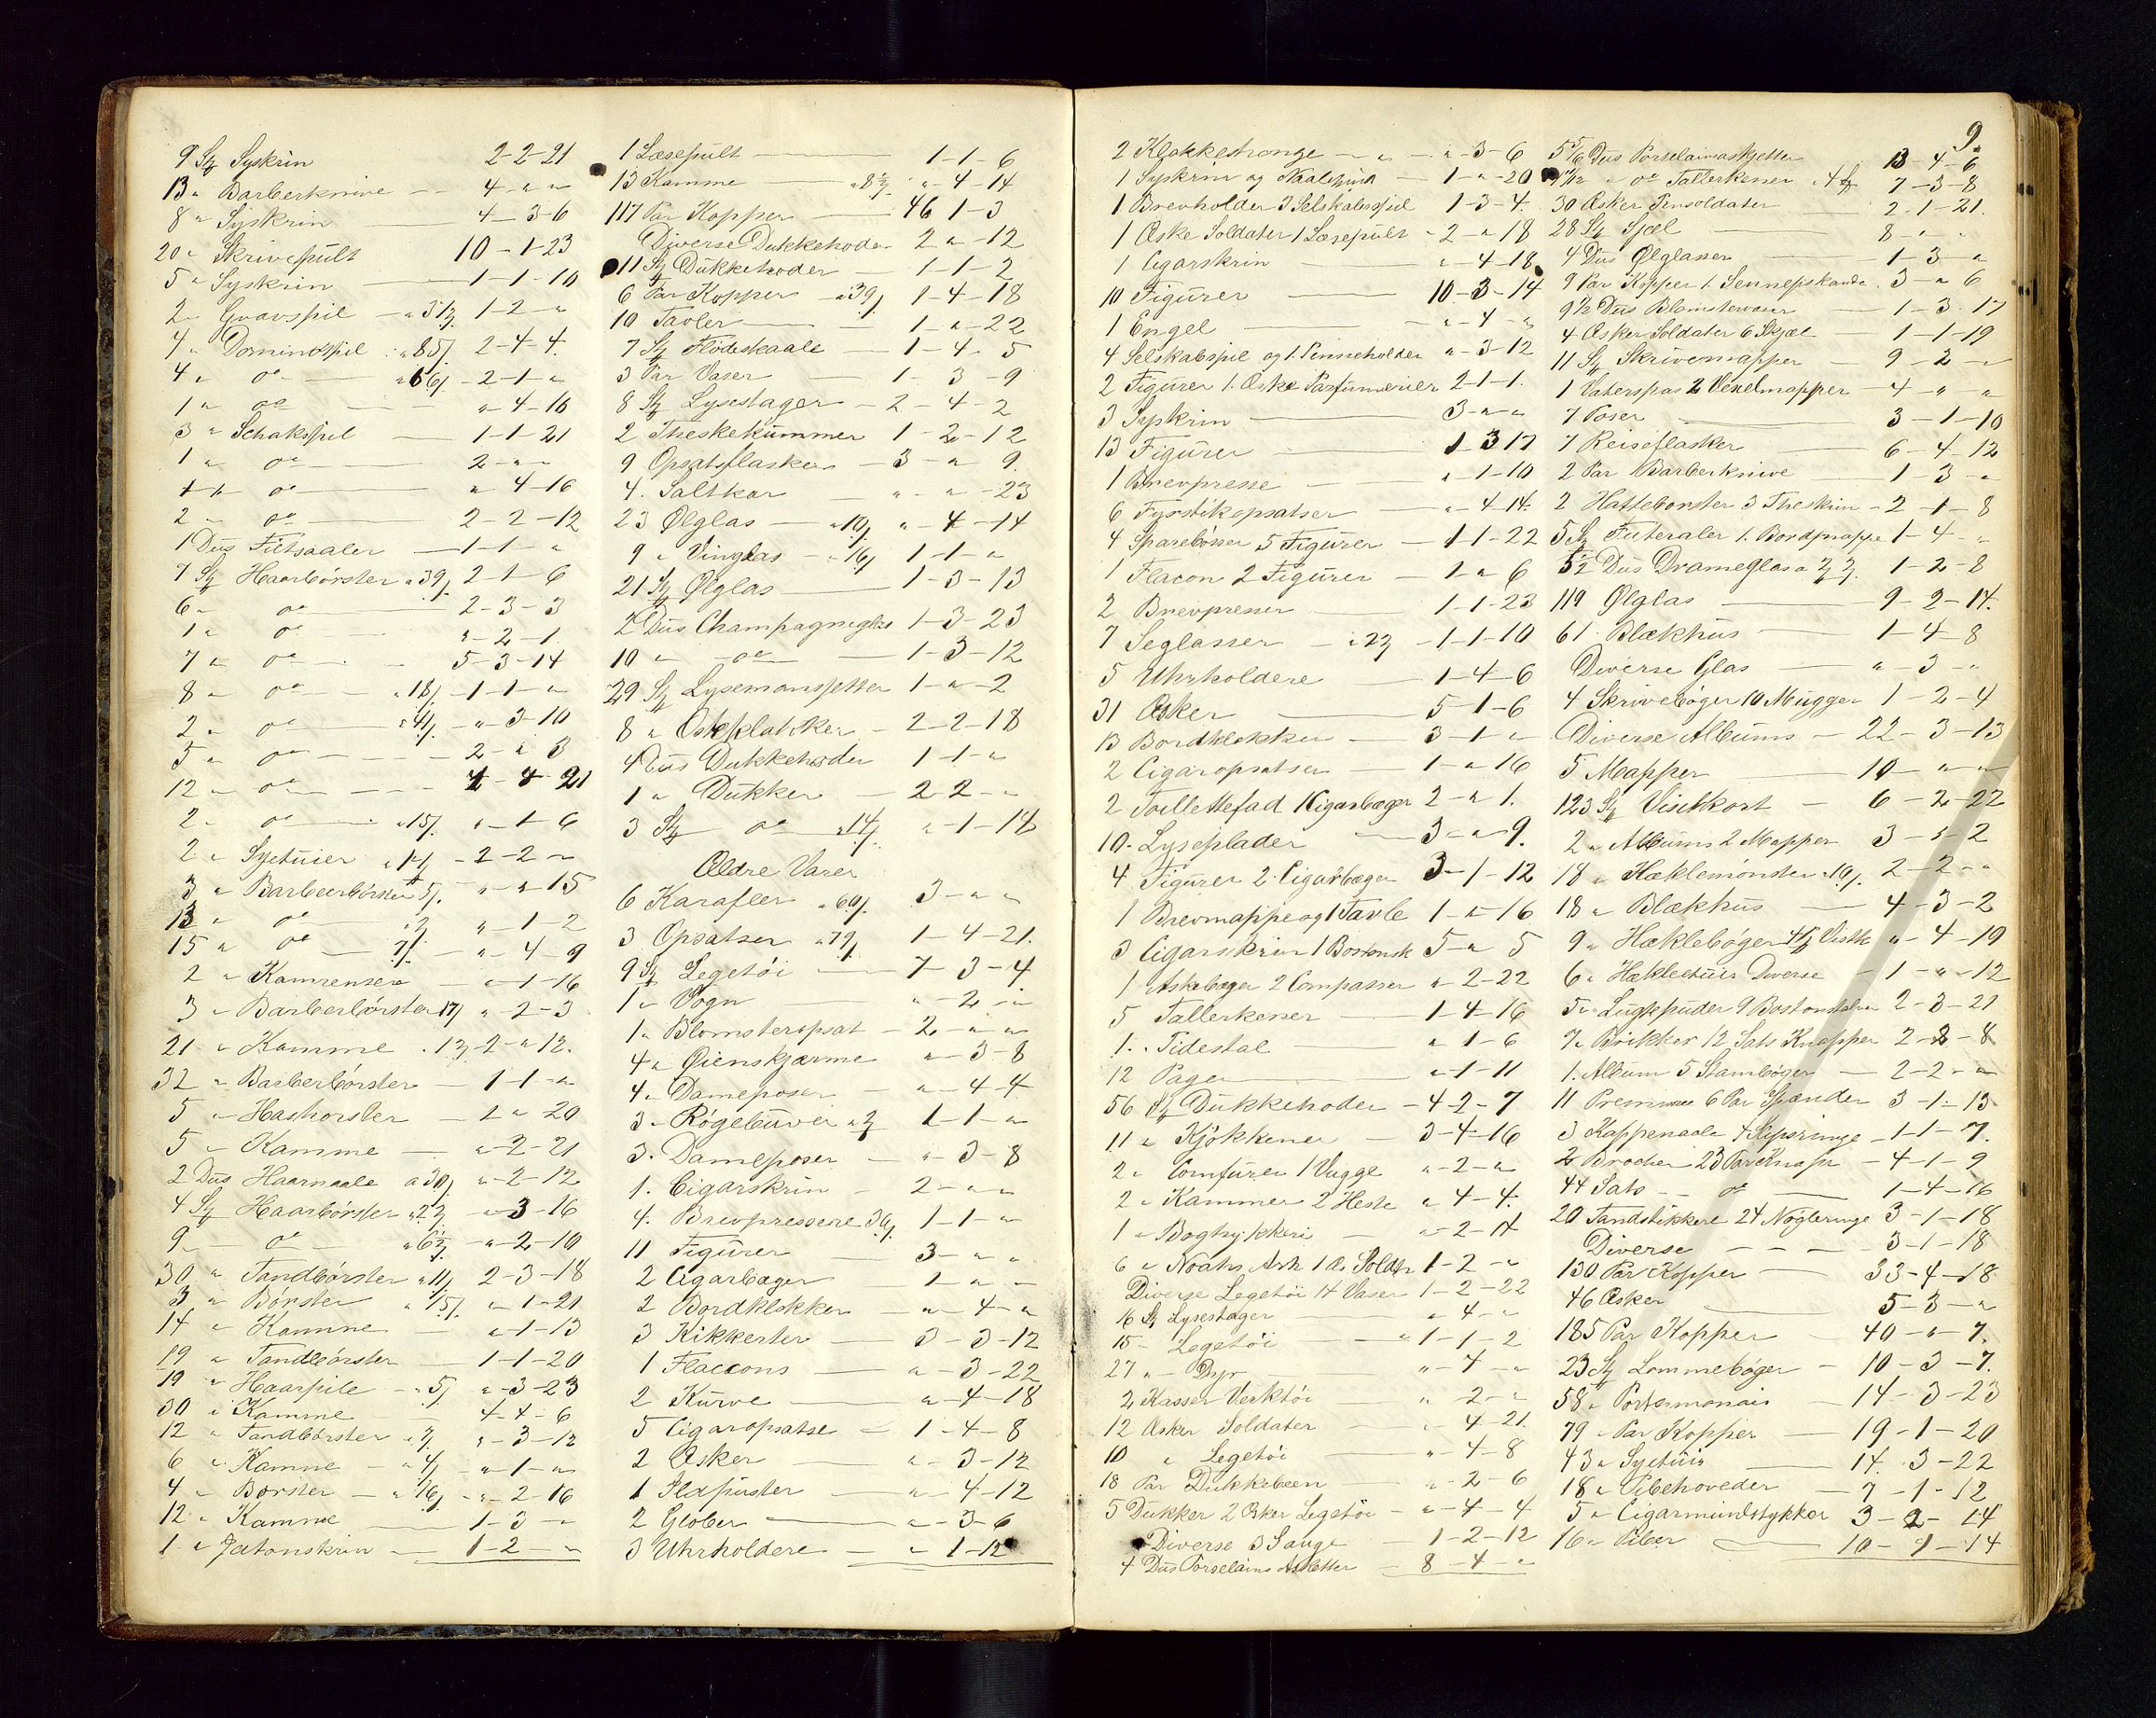 9 St Syskrin 2-2-21
13 " Barberknive 4 - " - "
8 " Syskrin 4-3-6
20 " Skrivepult 10-1-23
5 " Syskrin 1-1-10
2 " Gnavspil 1-2-"
4 " Dominospil a 85/ 2-4-4
4 " do a 66/ 2-1-"
1 " do "-4-16
3 " Schakspil 1-1-21
1 " do 2-"-"
do "-4-16
2 " do 2-2-12
1 Dus Filtsaaler 1-1-"
7 St Haarbørster a 39/ 2-1-6
6 " do 2-3-3
1 " do "-2-1
7 " do 5-3-14
8 " do a 18/ 1-1-"
2 " do a 41/ "-3-10
5 " do 2-"-3
12 " do 4-4-21
2 " do a 15/ "-1-6
2 " Syetuier 2-2-"
3 " Barberbørster a 5/ "-"-15
13 " do "-1-2
15 " do 7/ "-4-9
2 " Kamrensere "-1-16
3 " Barberbørster 17/ "-2-3
21 " Kamme 2-"-12
32 " Barberbørster 1-1-"
5 " Hatborster 1-"-20
5 " Kamme "-2-21
2 Dus Haarnaale a 30/ "-2-12
4 St Haarbørster a 22/ "-3-16
9 " do "-2-10
30 " Tandbørster a 11/ 2-3-18
3 " Børster a 15/ "-1-21
14 " Kamme "-1-13
19 " Tandbørster 1-1-20
19 " Haarpile a 5/ "-3-23
30 " Kamme 4-4-6
12 " Tandbørster a 7/ "-3-12
6 " Kamme a 4/ "-1-"
4 " Børster a 16/ "-2-16
12 " Kamme 1-3-"
1 " Jetonskrin 1-2-"
1 Læsepult 1-1-6
13 Kamme "-4-14
117 Par Kopper 46 1-3
Diverse Dukkehoder 2-"-12
11 St Dukkehoder 1-1-2
6 Par Kopper a 39/ 1-4-18
10 Tavler 1-"-22
7 St Flødeskaale 1-4-5
3 Par Vaser 1-3-9
8 St Lysestager 2-4-2
2 Theskekummer 1-2-12
9 Opsatsflasker 3-"-9
4 Saltkar "-"-23
23 Ølglas a 10/ "-4-14
9 " Vinglas a 16/ 1-1-"
21 St Ølglas 1-3-13
2 Dus Champagneglas 1-3-23
10 " do 1-3-12
29 St Lysemansjetter 1-"-2
8 " Osteklokker 2-2-18
4 Dus Dukkehoder 1-1-"
1 " Dukker 2-2-"
3 St do a 14/ "-1-18
Ældre Varer
6 Karafler a 60/ 3-"-"
3 Opsatser a 79/ 1-4-21
9 St Legetøi 7-3-4
1 " Vogn "-2-"
1 " Blomsteropsat 2-"-"
4 " Øienskjærme "-3-8
4 " Dameposer "-4-4
3 " Røgehuver 1-1-"
3 " Dameposer "-3-8
1 " Cigarskrin 2-"-"
4 " Brevpressere 36/ 1-1-"
11 Figürer 3-"-"
2 Cigarbæger 1-"-"
2 Bordklokker "-4-"
3 Kikkerter 3-3-12
1 Flaccons "-3-22
2 Kurve "-4-18
5 Cigaropsatse 1-4-8
2 Æsker "-3-12
1 Ildpuster "-4-12
2 Glober "-3-6
3 Uhrholdere "-1-12
9.
2 Klokkestrenge "-3-6
1 Syskrin og Naalepuda 1-"-20
1 Brevholder 3 Selskabsspil 1-3-4
1 Æske Soldater 1 Læsepult 2-"-18
1 Cigarskrin "-4-18
10 Figürer 10-3-14
1 Engel "-4-"
4 Selskabspil og 1 Penneholder "-3-12
2 Figürer 1 Æske Parfumerier 2-1-1
3 Syskrin 3-"-"
13 Figürer 1 3 17
1 Brevpresse "-1-10
6 Fyrstikopsatser "-4-14
4 Sparebøsser 5 Figürer 1-1-22
1 Flacon 2 Figürer 1-"-6
2 Brevpresser 1-1-23
7 Seglasser 1-1-10
5 Uhrholdere 1-4-6
31 Æsker 5-1-6
13 Bordklokker 3-1-"
2 Cigaropsatser 1-"-16
2 Toilletfad 1 Cigarbæger 2-"-1
10 Lyseplader 3-"-9
4 Figürer 2 Cigarbæger 3-1-12
1 Brevmappe og 1 Tavle 1-"-16
3 Cigarskrin 1 5-"-5
1 Askebæger 2 Compasser "-2-22
5 Tallerkener 1-4-16
1 Pidestal "-1-6
12 Page "-1-11
56 St Dukkehoder 4-2-7
11 " Kjøkkener 3-4-16
2 " Comfurer 1 Vugge "-2-"
2 " Kammer 2 Heste "-4-4
1 " Bogtrykkeri "-2-14
6 " Noahs Ark 1 Æs Soldtr 1-2-"
Diverse Legetøi 14 Vaser 1-2-22
16 St Lysestager "-4-"
15 " Legetøi 1-1-2
27 " Dyr "-4-"
2 Kasser Verktøi "-2-"
12 Æsker Soldater "-4-21
10 " Legetøi "-4-8
18 Par Dukkebeen "-2-6
5 Dukker 2 Æsker Legetøi "-4-4
Diverse 3 Sauge 1-2-12
4 Dus Porselains Asietter 8-4-"
Dus Porselainsaskjetter 13-4-6
do Tallerkener 7-3-8
30 Æsker Tinsoldater 2-1-21
28 St Sjæl 8-"-"
4 Dus Ølglasser 1-3-"
9 Par Kopper 1 Sennepskande 3-"-6
9½ Dus Blomstervaser 1-3-17
4 Æsker Soldater 6 Skjæl 1-1-19
11 St Skrivemapper 9-2-"
1 Vaterspas 2 Vexelmapper 4-"-"
7 Poser 3-1-10
7 Reiseflasker 6-4-12
2 Par Barberknive 1-3-"
2 Hattebørster 3 Theskrin 2-1-8
5 St Futeraler 1 Bordmappe 1-4-"
5½ Dus Drameglas 1-2-8
119 Ølglas 9-2-14
61 Blækhus 1-4-8
Diverse Glas "-3-"
4 Skrivebøger 10 Mugger 1-2-4
Diverse Albums 22-3-13
5 Mapper 10-"-"
123 St Visitkort 6-2-22
2 " Albums 2 Mapper 3-"-2
18 " Hæklemønster a 16/ 2-2-"
18 " Blækhus 4-3-2
9 " Hæklebøger "-4-19
6 " Hækleetuier Diverse 1-"-12
5 " 9 2-3-21
7 " Brikker 12 Sats Knapper 2-2-8
1 Album 5 Stambøger 2-2-"
11 6 Par Spænder 3-1-13
3 Kappenaale 4 Slipsringe 1-1-7
2 Brocher 23 Par Knapper 4-1-9
44 Sats do 1-4-16
20 Tandstikkere 24 Nøgleringe 3-1-18
Diverse 3-1-18
130 Par Kopper 33-4-18
46 Æsker 5-3-"
185 Par Kopper 40-"-7
23 St Lommebøger 10-3-7
58 " Portemonais 14-3-23
79 " Par Kopper 19-1-20
43 " Syetuis 14-3-22
18 " Pibehoveder 7-1-12
5 " Cigarmundstykker 3-2-14
16 " Piber 10-1-14